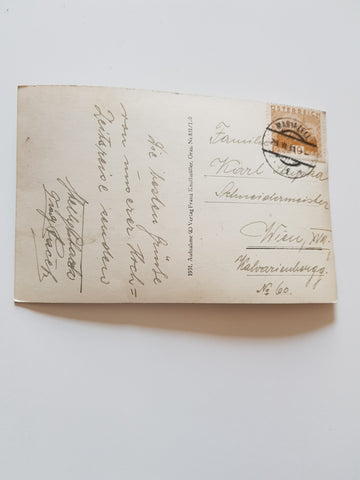 Die besten Grüße
von unserer Hoch=
zeitsreise senden
1931. Aufnahme u. Verlag Franz Knollmüller, Graz. Nr. 831/1-0
ÖSTERREICH
MARIAZELL
Familie
Karl
Schneidermeister
Wien, XVII.
Kalvarienbergg.
No 60.